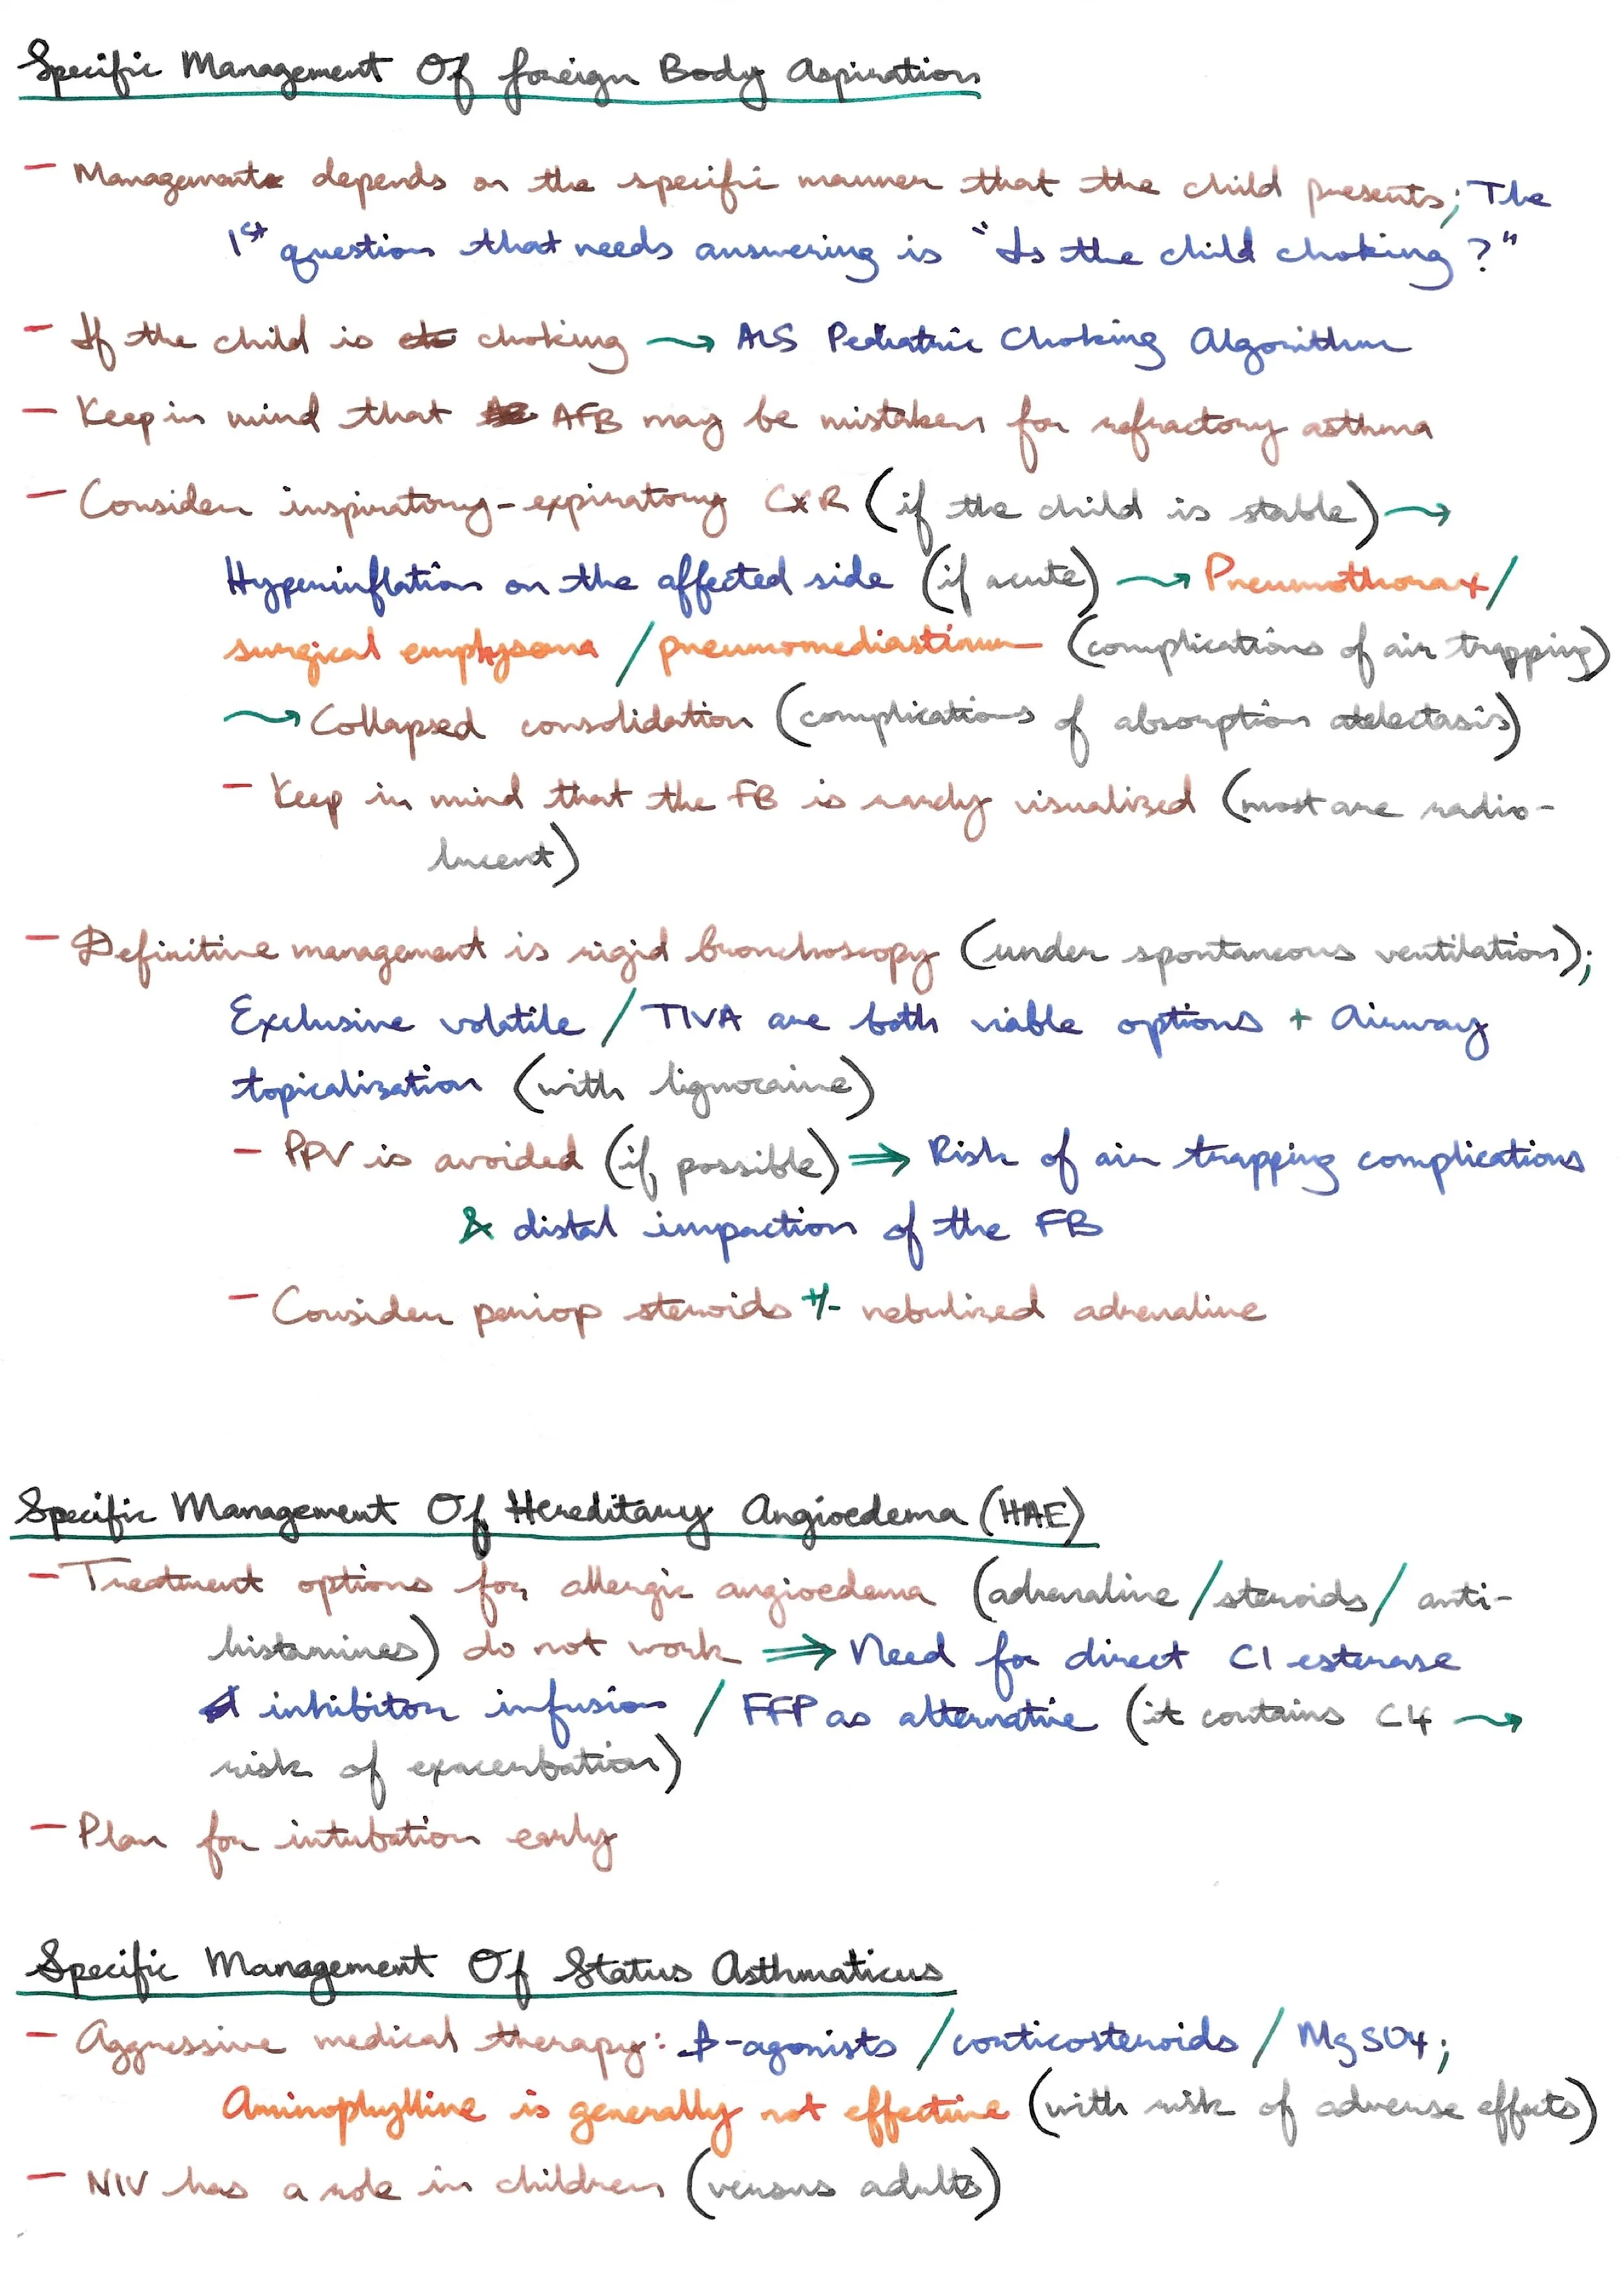 Specific Management Of Foreign Body Aspiration
- Management depends on the specific manner that the child presents; The
1st question that needs answering is "Is the child choking?"
- If the child is choking → ALS Pediatric Choking Algorithm
- Keep in mind that AFB may be mistaken for refractory asthma
- Consider inspiratory-expiratory CXR (if the child is stable) →
Hyperinflation on the affected side (if acute) → Pneumothorax/
surgical emphysema / pneumomediastinum (complications of air trapping)
→ Collapsed consolidation (complications of absorption atelectasis)
- Keep in mind that the FB is rarely visualized (most are radio-
lucent)
- Definitive management is rigid bronchoscopy (under spontaneous ventilation);
Exclusive volatile / TIVA are both viable options + Airway
topicalization (with lignocaine)
- PPV is avoided (if possible) ⇒ Risk of air trapping complications
& distal impaction of the FB
- Consider periop steroids +/- nebulized adrenaline
Specific Management Of Hereditary Angioedema (HAE)
- Treatment options for allergic angioedema (adrenaline / steroids / anti-
histamines) do not work ⇒ Need for direct C1 esterase
inhibitor infusion / FFP as alternative (it contains C4 →
risk of exacerbation)
- Plan for intubation early
Specific Management Of Status Asthmaticus
- Aggressive medical therapy: β-agonists / corticosteroids / MgSO4;
Aminophylline is generally not effective (with risk of adverse effects)
- NIV has a role in children (versus adults)